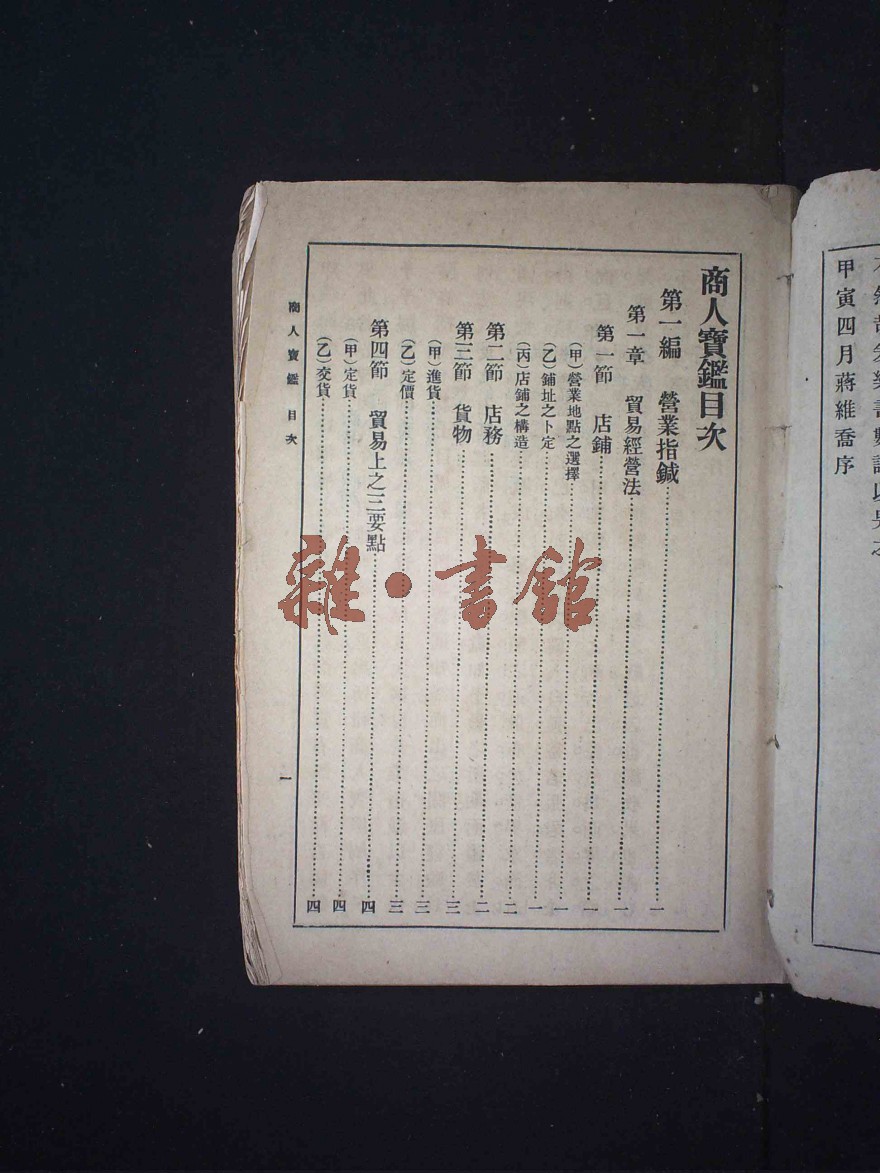 甲寅四月蔣維喬序
商人寶鑑目次
第一編　營業指鍼……一
第一章　貿易經營法……一
第一節　店鋪……一
（甲）營業地點之選擇……一
（乙）鋪址之卜定……一
（丙）店鋪之構造……二
第二節　店務……二
第三節　貨物……三
（甲）進貨……三
（乙）定價……三
第四節　貿易上之三要點……四
（甲）定貨……四
（乙）交貨……四
商人寶鑑　目次
一
雜·書館